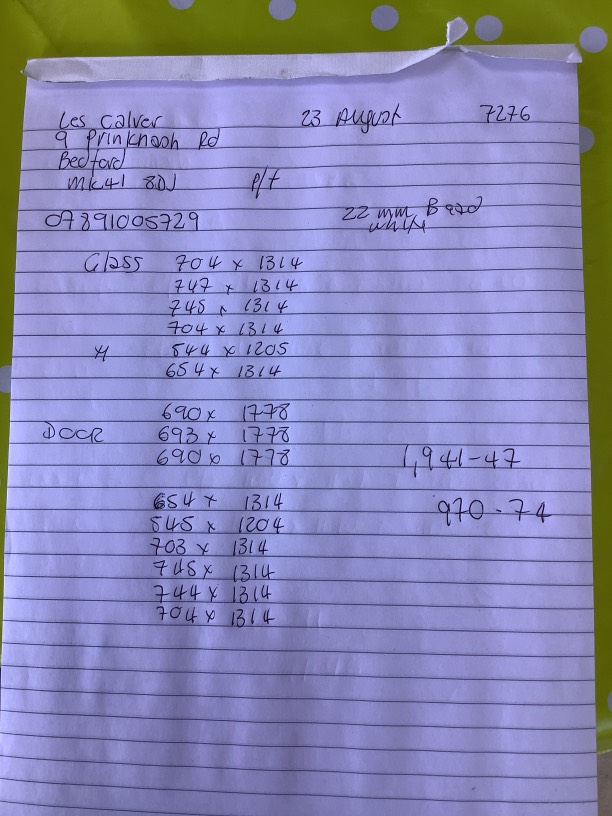 Les Calver 23 August 7276
9 Prinknash Rd
Bedford
MK41 8DJ P/t
07891005729 22 mm Bead
white
Glass 704 x 1314
747 x 1314
745 x 1314
704 x 1314
544 x 1205
654 x 1314
690 x 1778
Door 693 x 1778
690 x 1778 1,941-47
654 x 1314 970-74
545 x 1204
703 x 1314
745 x 1314
744 x 1314
704 x 1314